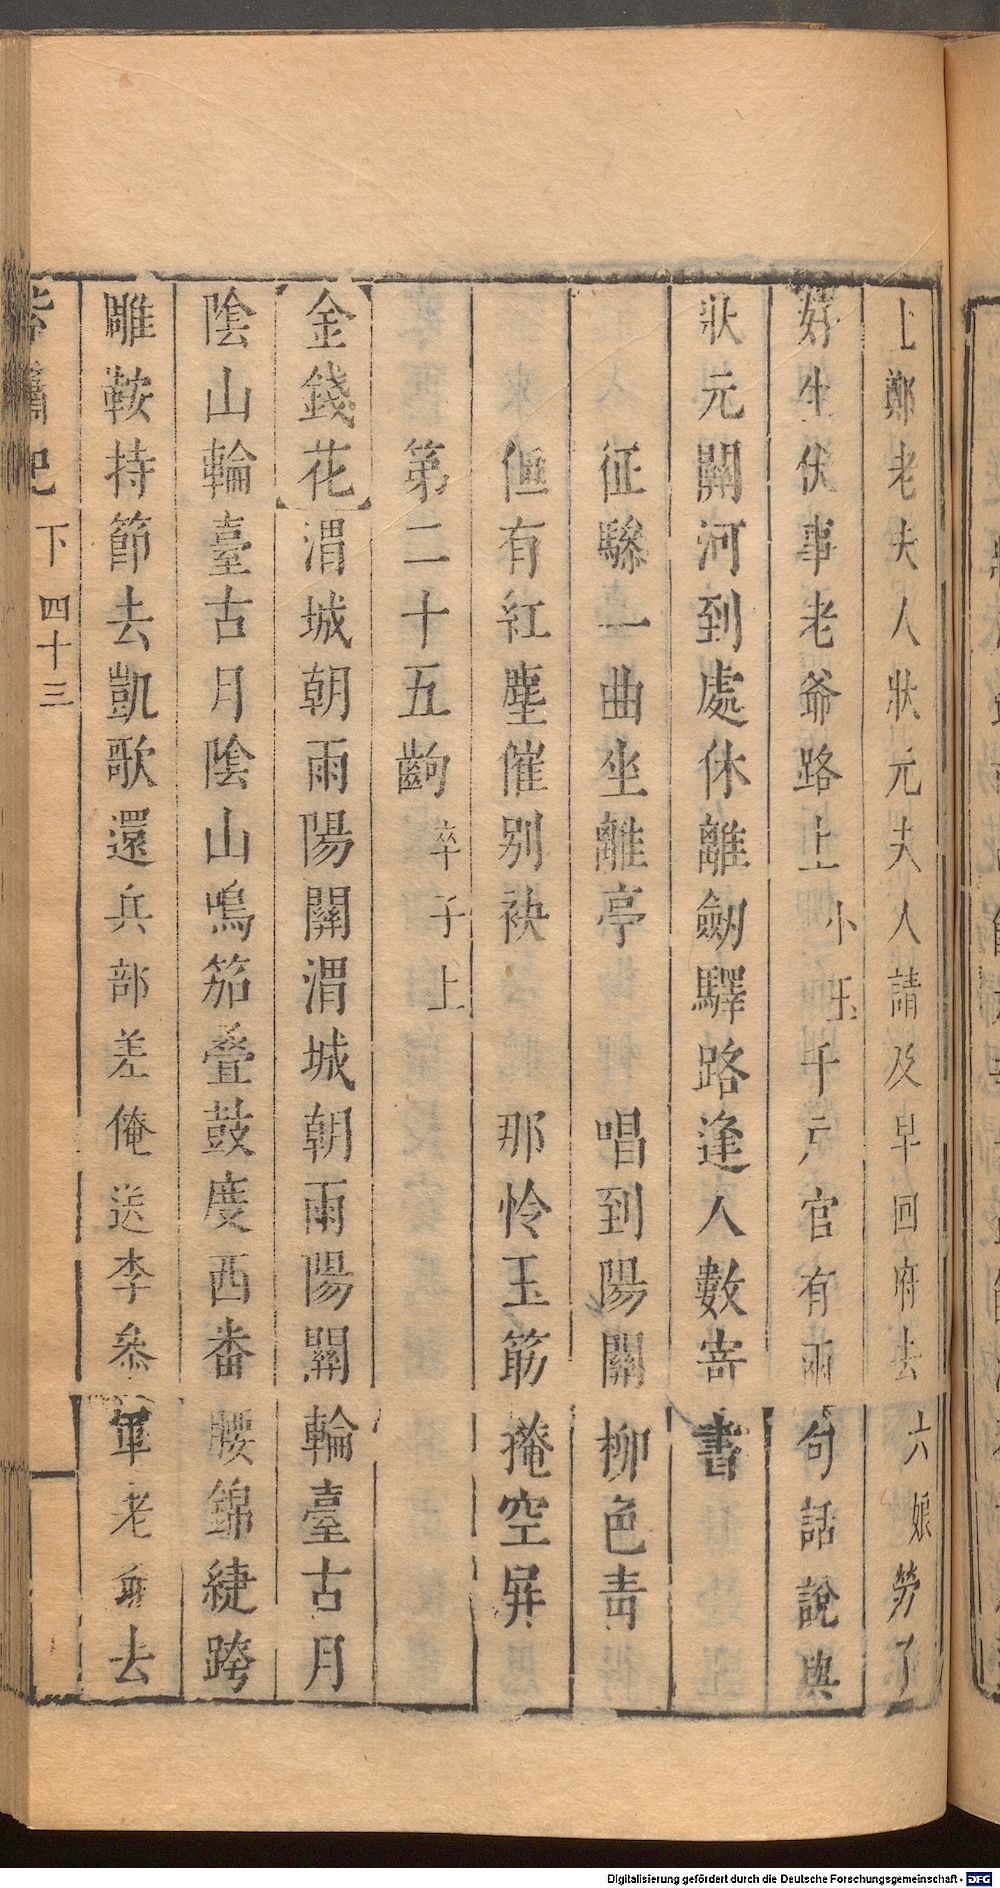 上鄭老夫人狀元夫人請及早回府去六娘勞了
好生伏事老爺路上小玉千戶官有兩句話說與
狀元關河到處休離劒驛路逢人數寄書
征驂一曲坐離亭 唱到陽關柳色青
但有紅塵催别袂 那怜玉筯掩空屏
第二十五齣 卒子上
【金錢花】渭城朝雨陽關渭城朝雨陽關輪臺古月
陰山輪臺古月陰山鳴笳叠鼓度西畨腰錦緁跨
雕鞍持節去凱歌還兵部差俺送李叅軍老爺去
紫簫記 下 四十三
Digitalisierung gefördert durch die Deutsche Forschungsgemeinschaft - DFG